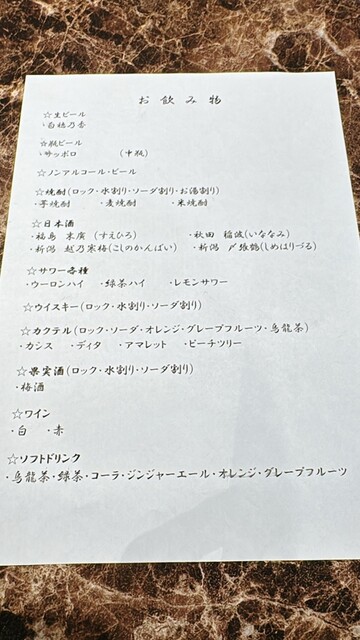 お飲み物
☆生ビール
・白穂乃香
☆瓶ビール
・サッポロ　　　（中瓶）
☆ノンアルコール・ビール
☆焼酎（ロック・水割り・ソーダ割り・お湯割り）
・芋焼酎　　・麦焼酎　　・米焼酎
☆日本酒
・福島　末廣（すえひろ）　　・秋田　稲波（いななみ）
・新潟　越乃寒梅（こしのかんばい）　・新潟　〆張鶴（しめはりづる）
☆サワー各種
・ウーロンハイ　・緑茶ハイ　・レモンサワー
☆ウイスキー（ロック・水割り・ソーダ割り）
☆カクテル（ロック・ソーダ・オレンジ・グレープフルーツ・烏龍茶）
・カシス　・ディタ　・アマレット　・ピーチツリー
☆果実酒（ロック・水割り・ソーダ割り）
・梅酒
☆ワイン
・白　・赤
☆ソフトドリンク
・烏龍茶・緑茶・コーラ・ジンジャーエール・オレンジ・グレープフルーツ